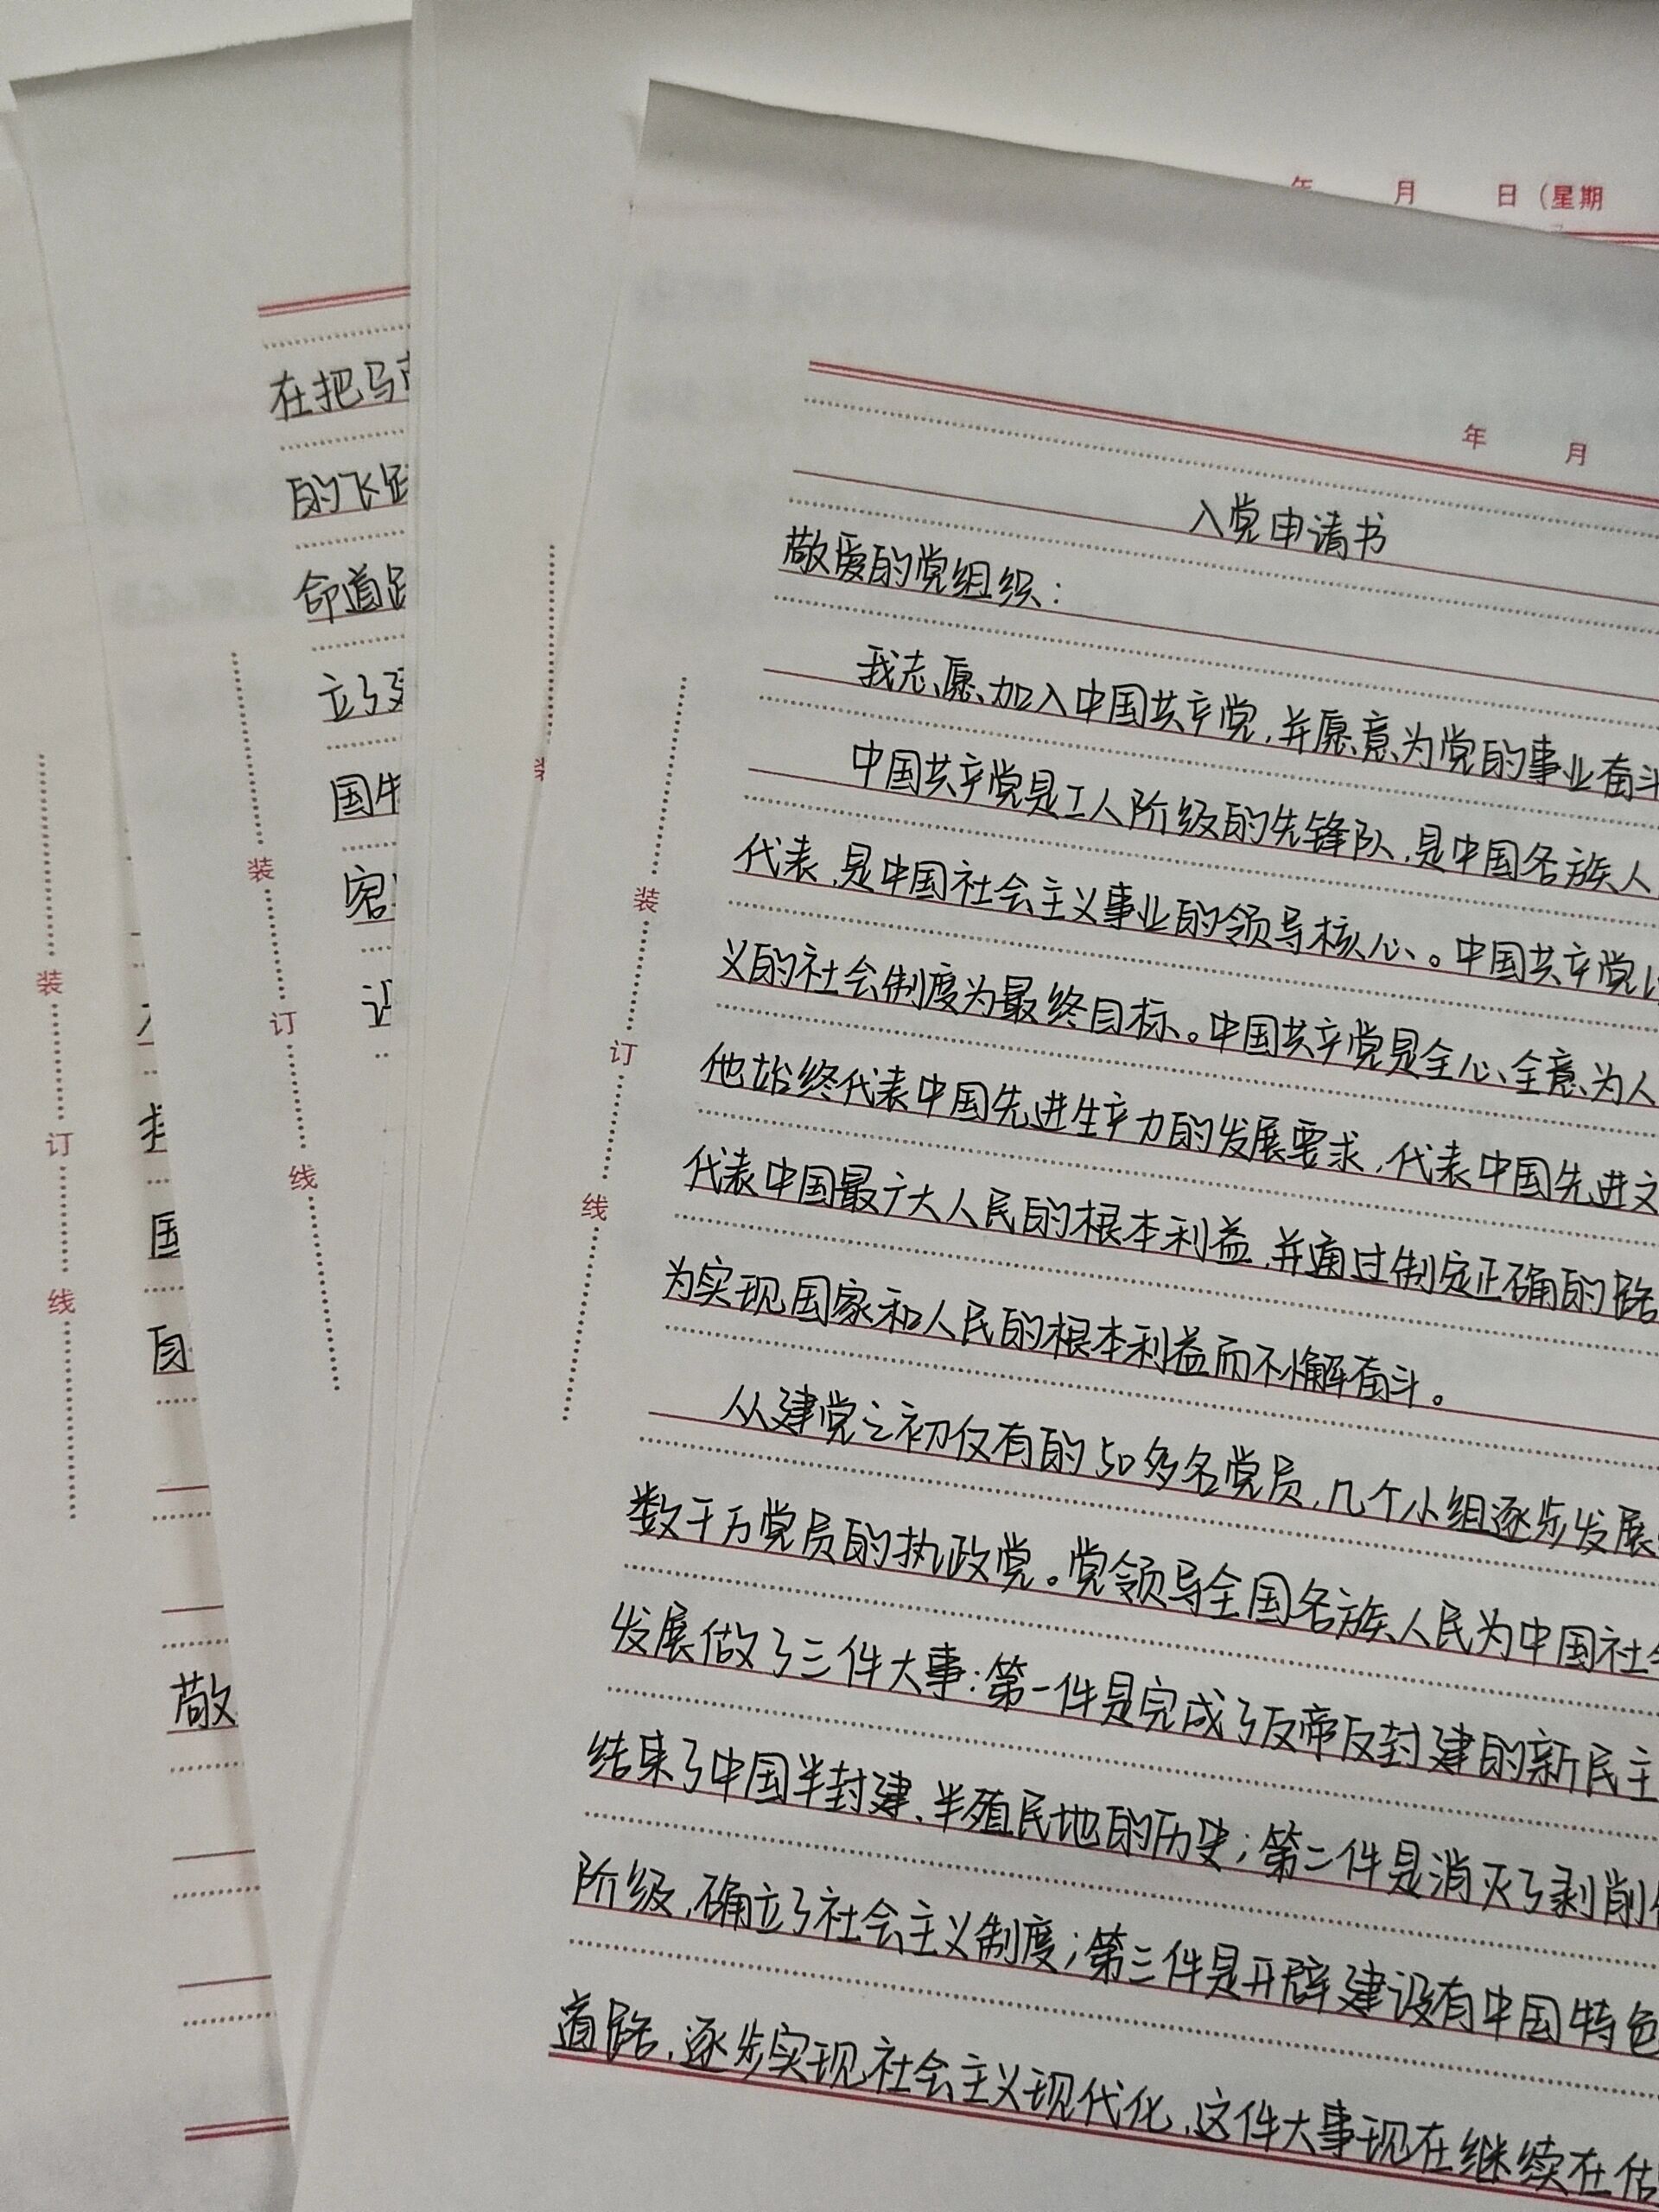 年 月 日（星期
年 月
入党申请书
敬爱的党组织：
我志愿加入中国共产党，并愿意为党的事业奋斗
中国共产党是工人阶级的先锋队，是中国各族人
代表，是中国社会主义事业的领导核心。中国共产党以
义的社会制度为最终目标。中国共产党是全心全意为人
他始终代表中国先进生产力的发展要求，代表中国先进文
代表中国最广大人民的根本利益，并通过制定正确的路
为实现国家和人民的根本利益而不懈奋斗。
从建党之初仅有的50多名党员，几个小组逐步发展
数千万党员的执政党。党领导全国各族人民为中国社会
发展做了三件大事：第一件是完成了反帝反封建的新民主
结束了中国半封建、半殖民地的历史；第二件是消灭了剥削
阶级，确立了社会主义制度；第三件是开辟建设有中国特色
道路，逐步实现社会主义现代化，这件大事现在继续在
装
订
线
在把马
的飞跃
命道路
立了
国
容
装
订
线
装
国
自
敬
装
订
线